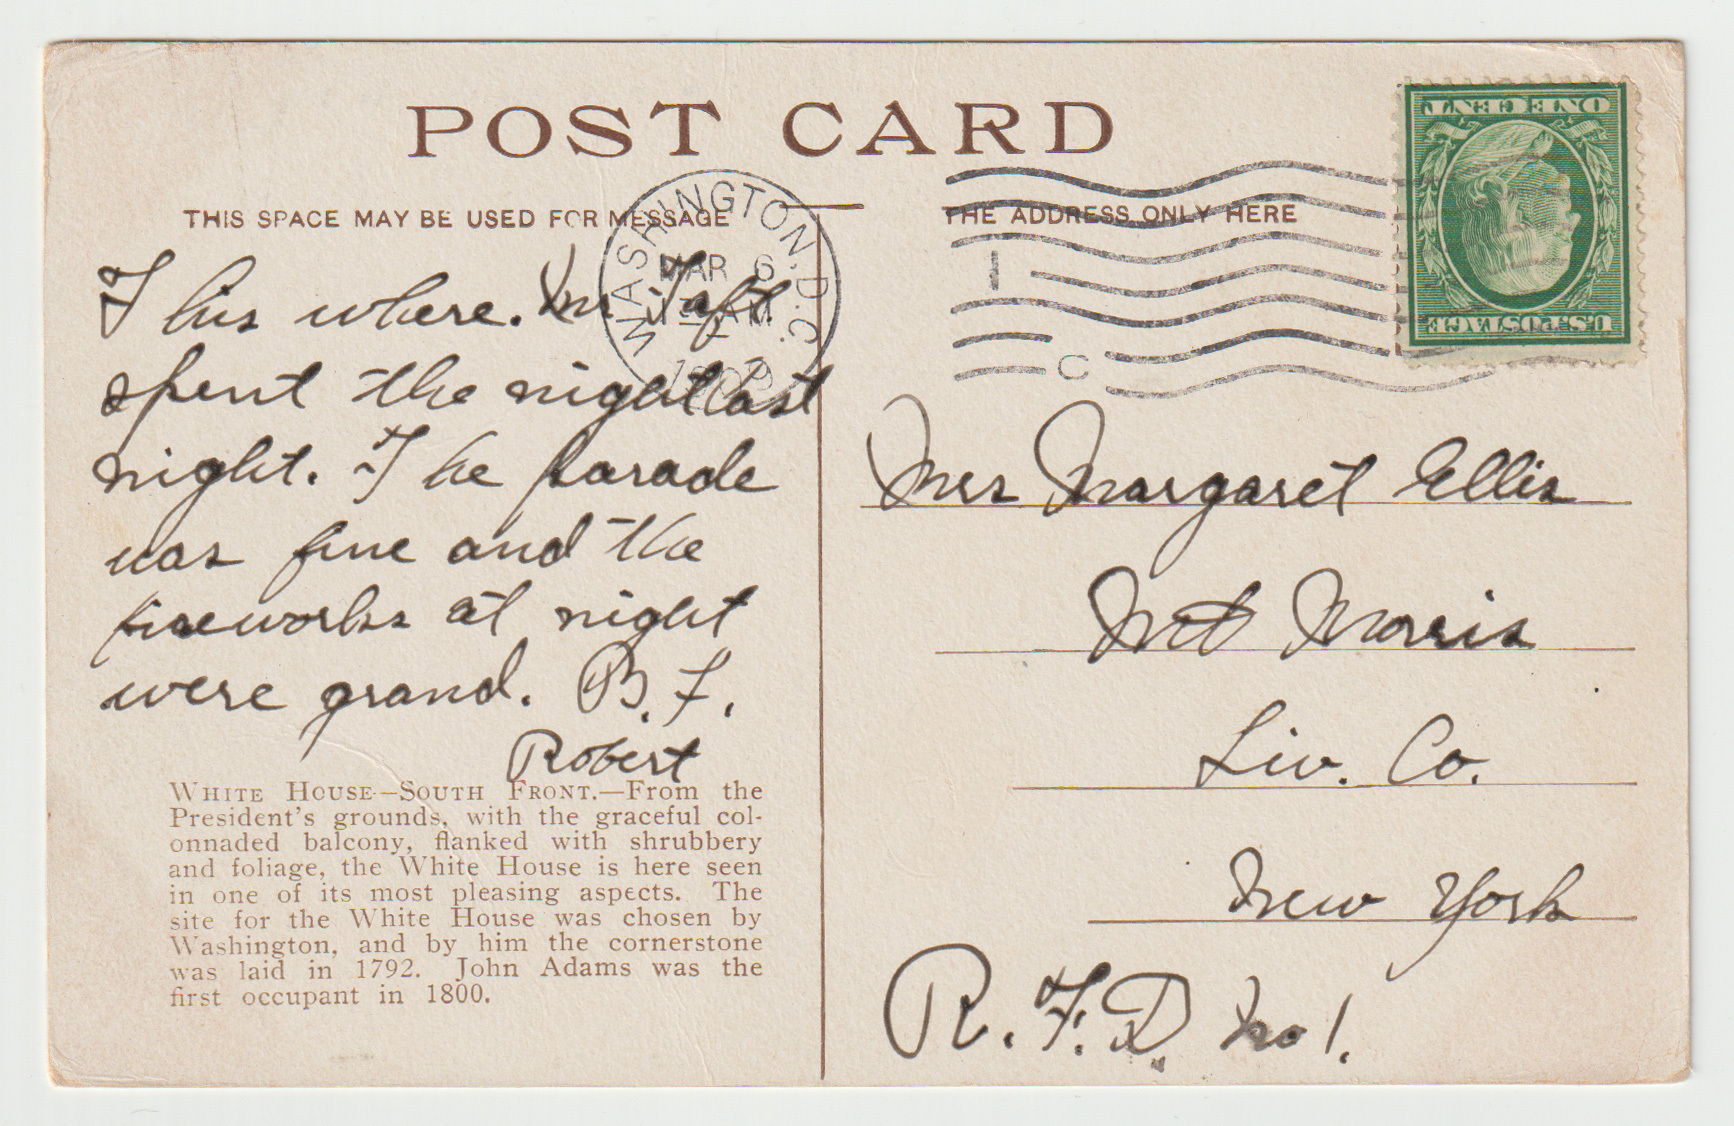 POST CARD
THIS SPACE MAY BE USED FOR MESSAGE
THE ADDRESS ONLY HERE
WASHINGTON, D.C.
MAR 6
AM
1909
1
C
ONE CENT
U.S. POSTAGE
This where. Mr Taft
spent the night last
night. The parade
was fine and the
fireworks at night
were grand. B. F.
Robert
WHITE HOUSE—SOUTH FRONT.—From the
President's grounds, with the graceful col-
onnaded balcony, flanked with shrubbery
and foliage, the White House is here seen
in one of its most pleasing aspects. The
site for the White House was chosen by
Washington, and by him the cornerstone
was laid in 1792. John Adams was the
first occupant in 1800.
Mrs Margaret Ellis
Mt Morris
Liv. Co.
New York
R.F.D. No 1.